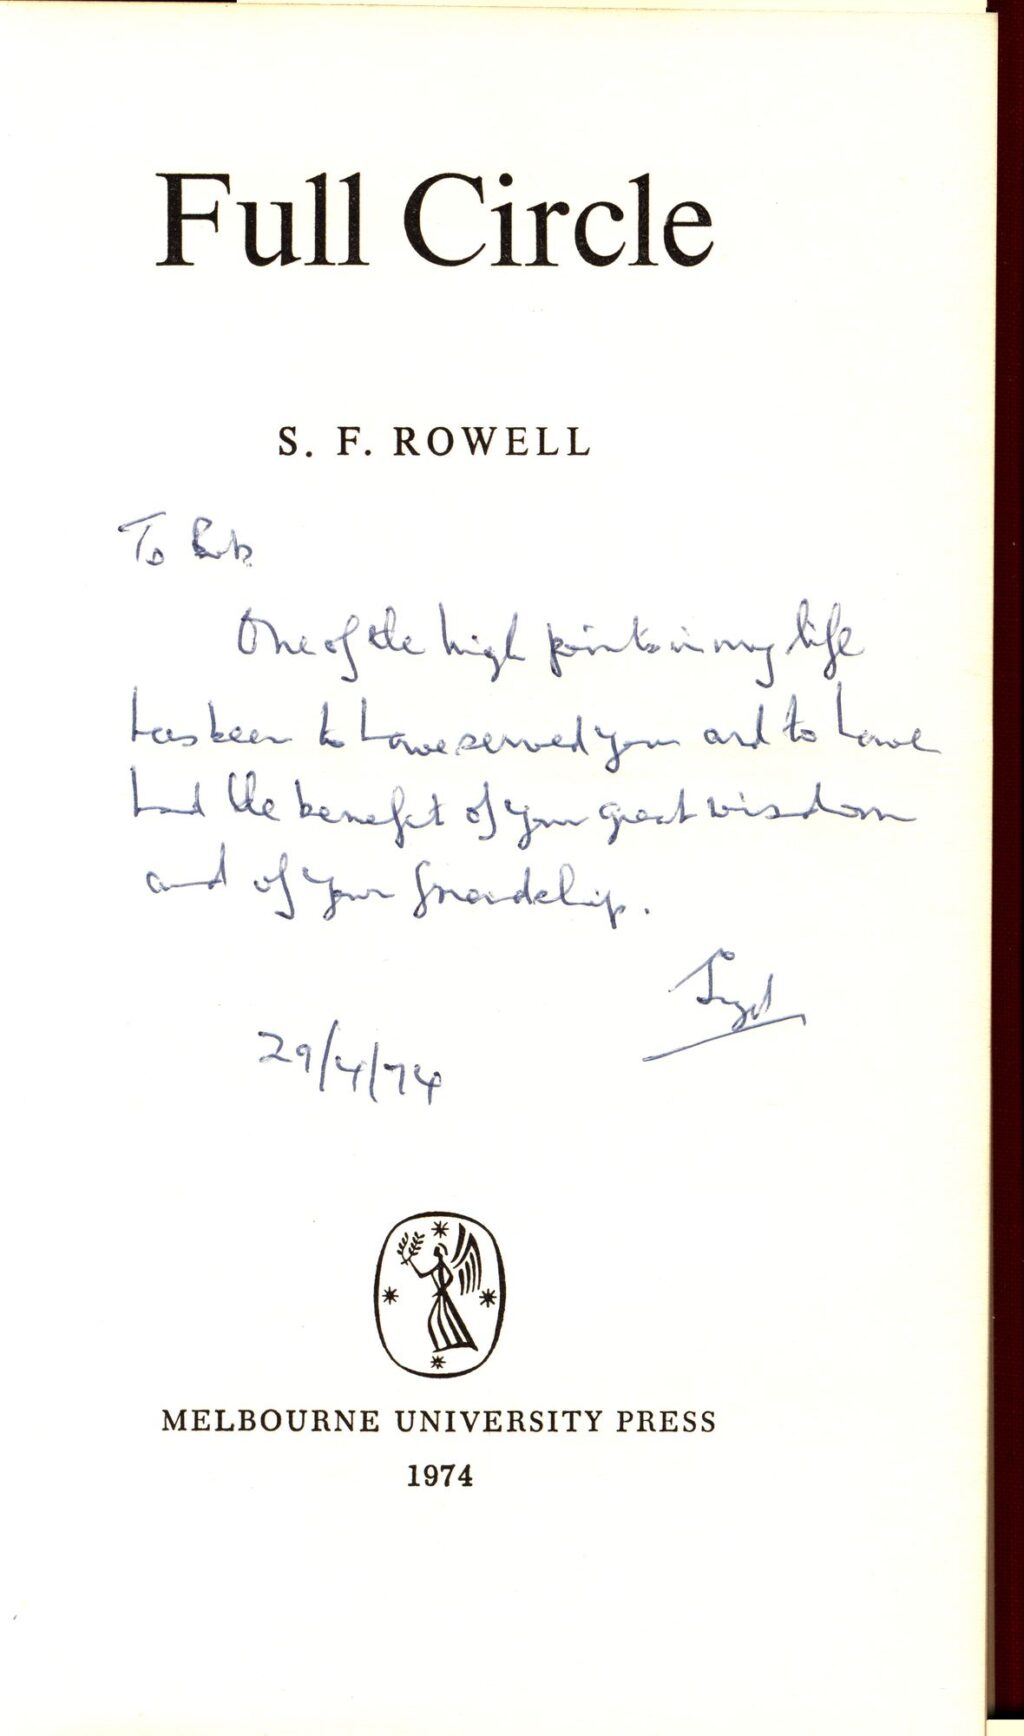 Full Circle
S. F. ROWELL
To Bob
One of the high points in my life
has been to have served you and to have
had the benefit of your great wisdom
and of your friendship.
Syd
29/4/74
MELBOURNE UNIVERSITY PRESS
1974